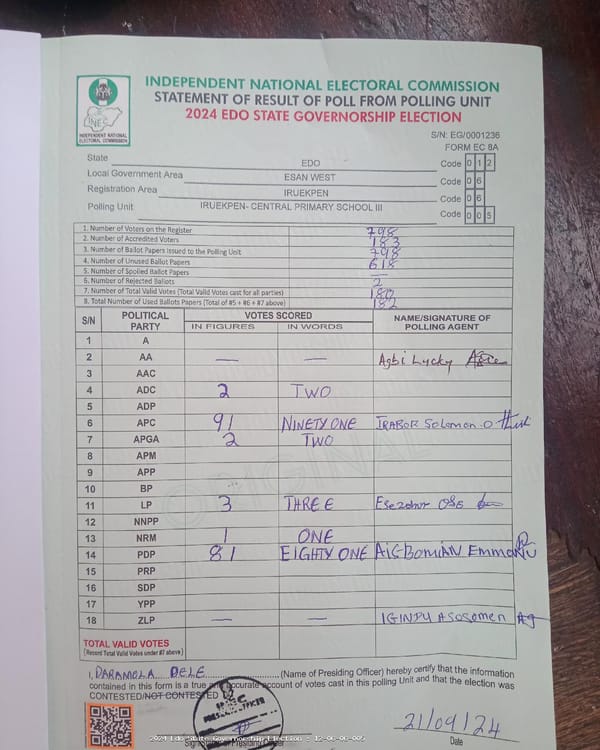 INDEPENDENT NATIONAL ELECTORAL COMMISSION
STATEMENT OF RESULT OF POLL FROM POLLING UNIT
2024 EDO STATE GOVERNORSHIP ELECTION
INEC
INDEPENDENT NATIONAL ELECTORAL COMMISSION
S/N: EG/0001236
FORM EC 8A
State EDO Code 0 1 2
Local Government Area ESAN WEST Code 0 6
Registration Area IRUEKPEN Code 0 6
Polling Unit IRUEKPEN- CENTRAL PRIMARY SCHOOL III Code 0 0 5
1. Number of Voters on the Register 798
2. Number of Accredited Voters 183
3. Number of Ballot Papers Issued to the Polling Unit 798
4. Number of Unused Ballot Papers 618
5. Number of Spoiled Ballot Papers —
6. Number of Rejected Ballots 2
7. Number of Total Valid Votes (Total Valid Votes cast for all parties) 180
8. Total Number of Used Ballots Papers (Total of #5 + #6 + #7 above) 182
S/N POLITICAL PARTY VOTES SCORED NAME/SIGNATURE OF POLLING AGENT
IN FIGURES IN WORDS
1 A
2 AA — — Agbi Lucky
3 AAC
4 ADC 2 TWO
5 ADP
6 APC 91 NINETY ONE IRABOR Solomon .O
7 APGA 2 TWO
8 APM
9 APP
10 BP
11 LP 3 THREE
12 NNPP
13 NRM 1 ONE
14 PDP 81 EIGHTY ONE AIGBOMIAN Emma
15 PRP
16 SDP
17 YPP
18 ZLP — —
ORIGINAL
TOTAL VALID VOTES
(Record Total Valid Votes under #7 above)
I, DARAMOLA DELE (Name of Presiding Officer) hereby certify that the information
contained in this form is a true and accurate account of votes cast in this polling Unit and that the election was
CONTESTED/NOT CONTESTED
INEC
PRESIDING OFFICER
21/09/24
2024 Edo State Governorship Election - 12-06-06-005
Signature of Presiding Officer Date